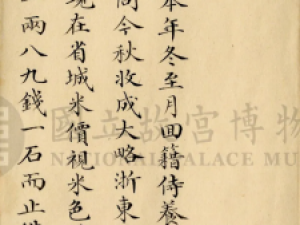 本年冬至月回籍侍養
尚今秋收成大略浙東
現在省城米價視米色
兩八九錢一石而止
國立故宮博物
NATIONAL PALACE MU